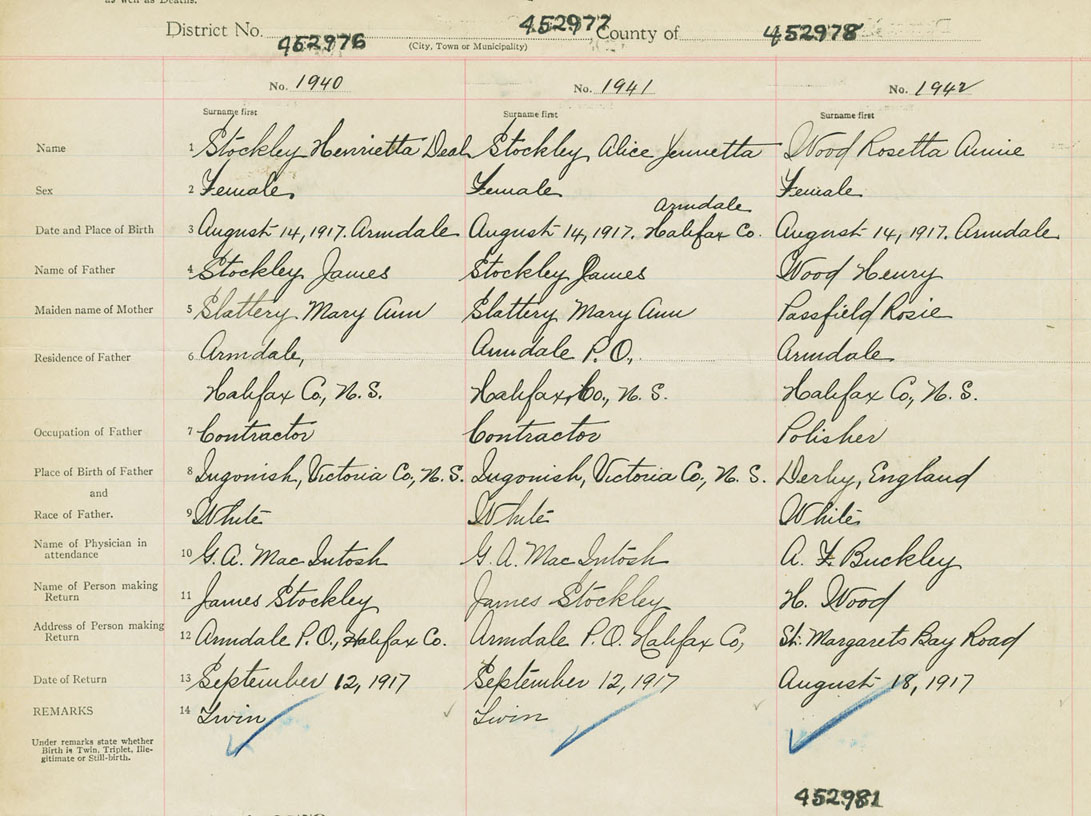 as well as Deaths.
District No. 452976 452977 County of 452978
(City, Town or Municipality)
No. 1940 No. 1941 No. 1942
Surname first Surname first Surname first
Name 1 Stockley Henrietta Deal Stockley Alice Jennetta Wood Rosetta Annie
Sex 2 Female Female Female
Armdale
Date and Place of Birth 3 August 14, 1917. Armdale August 14, 1917. Halifax Co. August 14, 1917. Armdale
Name of Father 4 Stockley James Stockley James Wood Henry
Maiden name of Mother 5 Slattery Mary Ann Slattery Mary Ann Passfield Rosie
Residence of Father 6 Armdale, Armdale P.O., Armdale
Halifax Co., N.S. Halifax, Co., N.S. Halifax Co., N.S.
Occupation of Father 7 Contractor Contractor Polisher
Place of Birth of Father 8 Ingonish, Victoria Co., N.S. Ingonish, Victoria Co., N.S. Derby, England
and
Race of Father. 9 White White White
Name of Physician in attendance 10 G.A. MacIntosh G.A. MacIntosh A. F. Buckley
Name of Person making Return 11 James Stockley James Stockley H. Wood
Address of Person making Return 12 Armdale P.O., Halifax Co. Armdale P.O. Halifax Co, St. Margarets Bay Road
Date of Return 13 September 12, 1917 September 12, 1917 August 18, 1917
REMARKS 14 Twin Twin
Under remarks state whether
Birth is Twin, Triplet, Ille-
gitimate or Still-birth.
452981